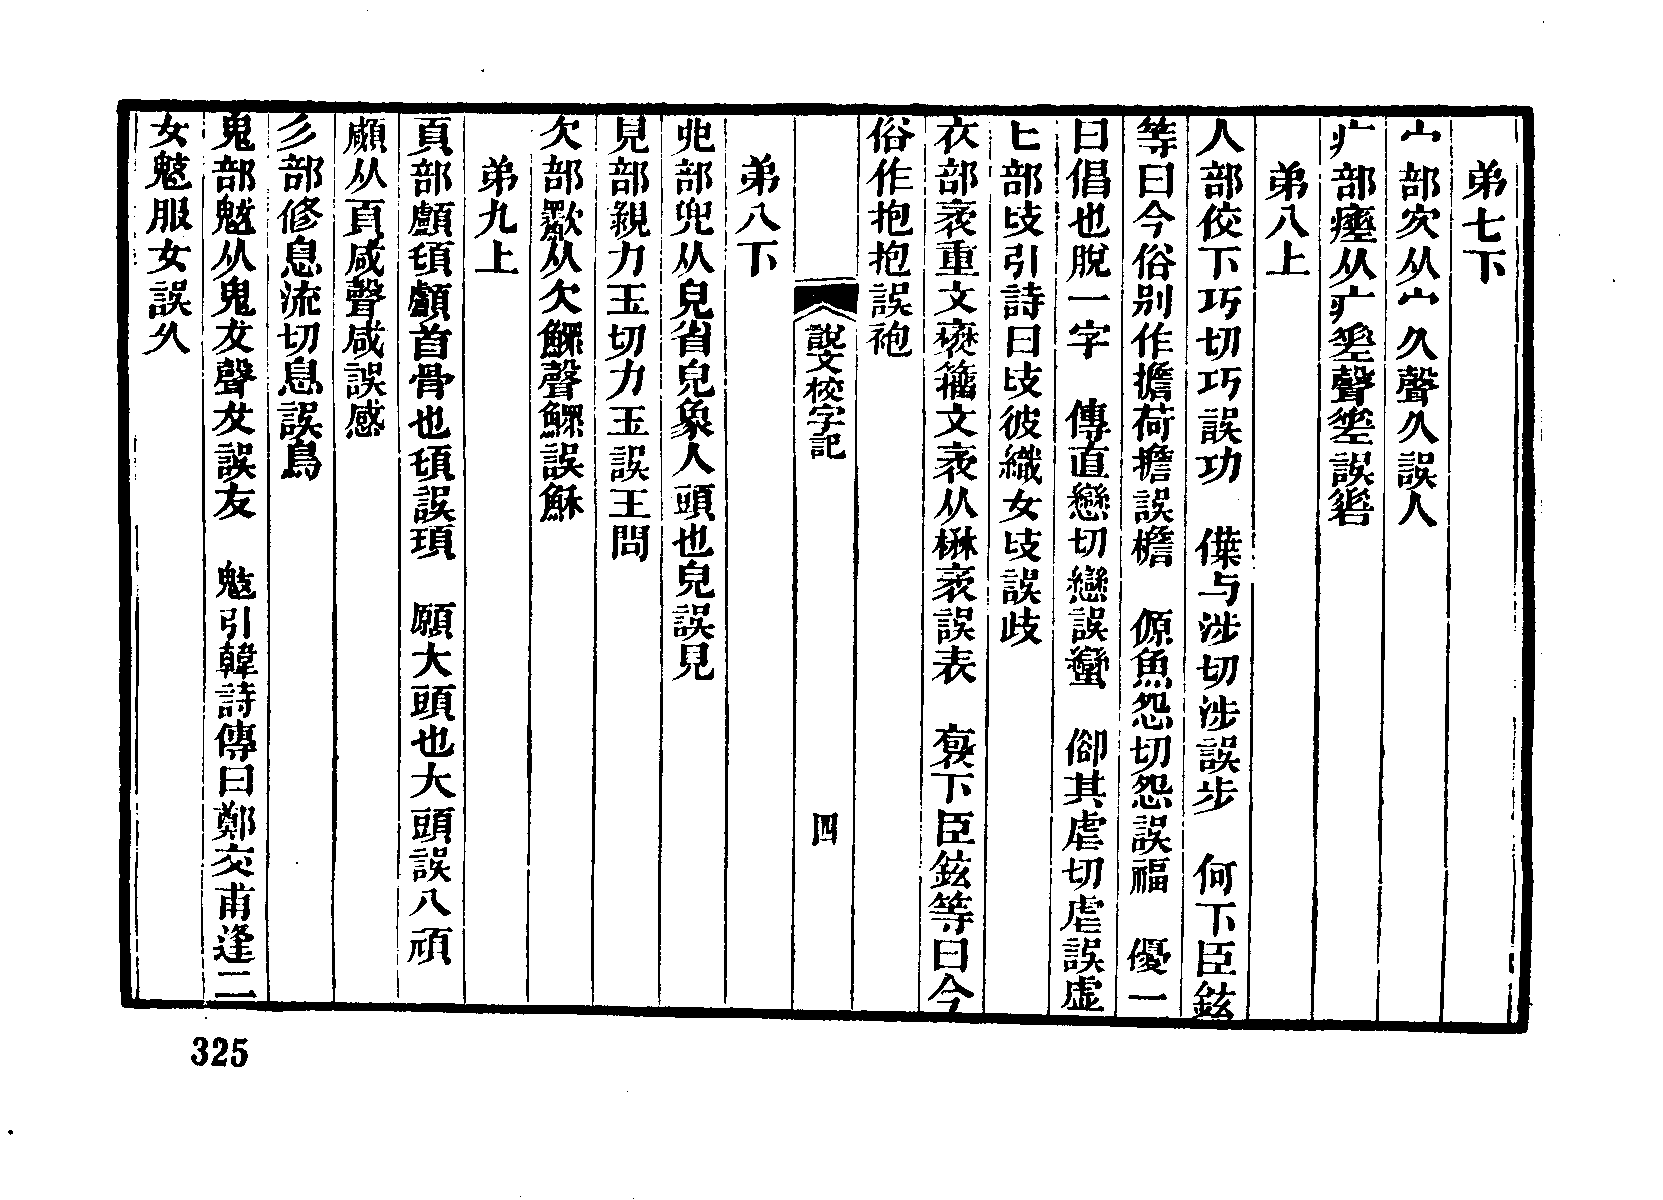 弟七下
宀部㝌从宀久聲久誤人
疒部瘞从疒㘸聲㘸誤
弟八上
人部佼下巧切巧誤功　偞与涉切涉誤步　何下臣鉉
等曰今俗别作擔荷擔誤檐　傆魚怨切怨誤福　優一
曰倡也脫一字　傳直戀切戀誤蠻　㑢其虐切虐誤虛
匕部𠤗引詩曰𠤗彼織女𠤗誤歧
衣部袤重文𧝫籀文袤从楙袤誤表　裒下臣鉉等曰今
俗作抱抱誤袍
說文校字記
四
弟八下
𠑹部兜从皃省皃象人頭也皃誤見
見部親力玉切力玉誤王問
欠部歠从欠鰥聲鰥誤穌
弟九上
頁部顱䪼顱首骨也䪼誤頊　願大頭也大頭誤八頑
顑从頁咸聲咸誤感
彡部修息流切息誤鳥
鬼部魃从鬼犮聲犮誤友　鬾引韓詩傳曰鄭交甫逢二
女鬾服女誤久